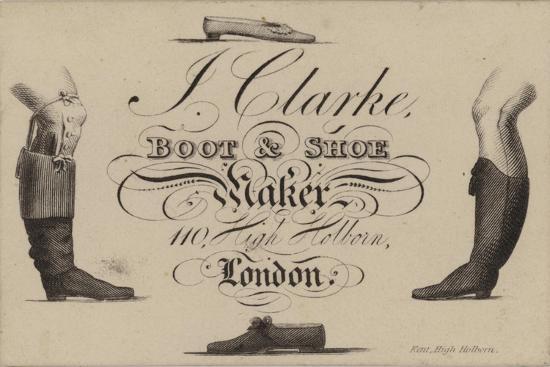 J. Clarke,
BOOT & SHOE
Maker,
110, High Holborn,
London.
Kent, High Holborn.